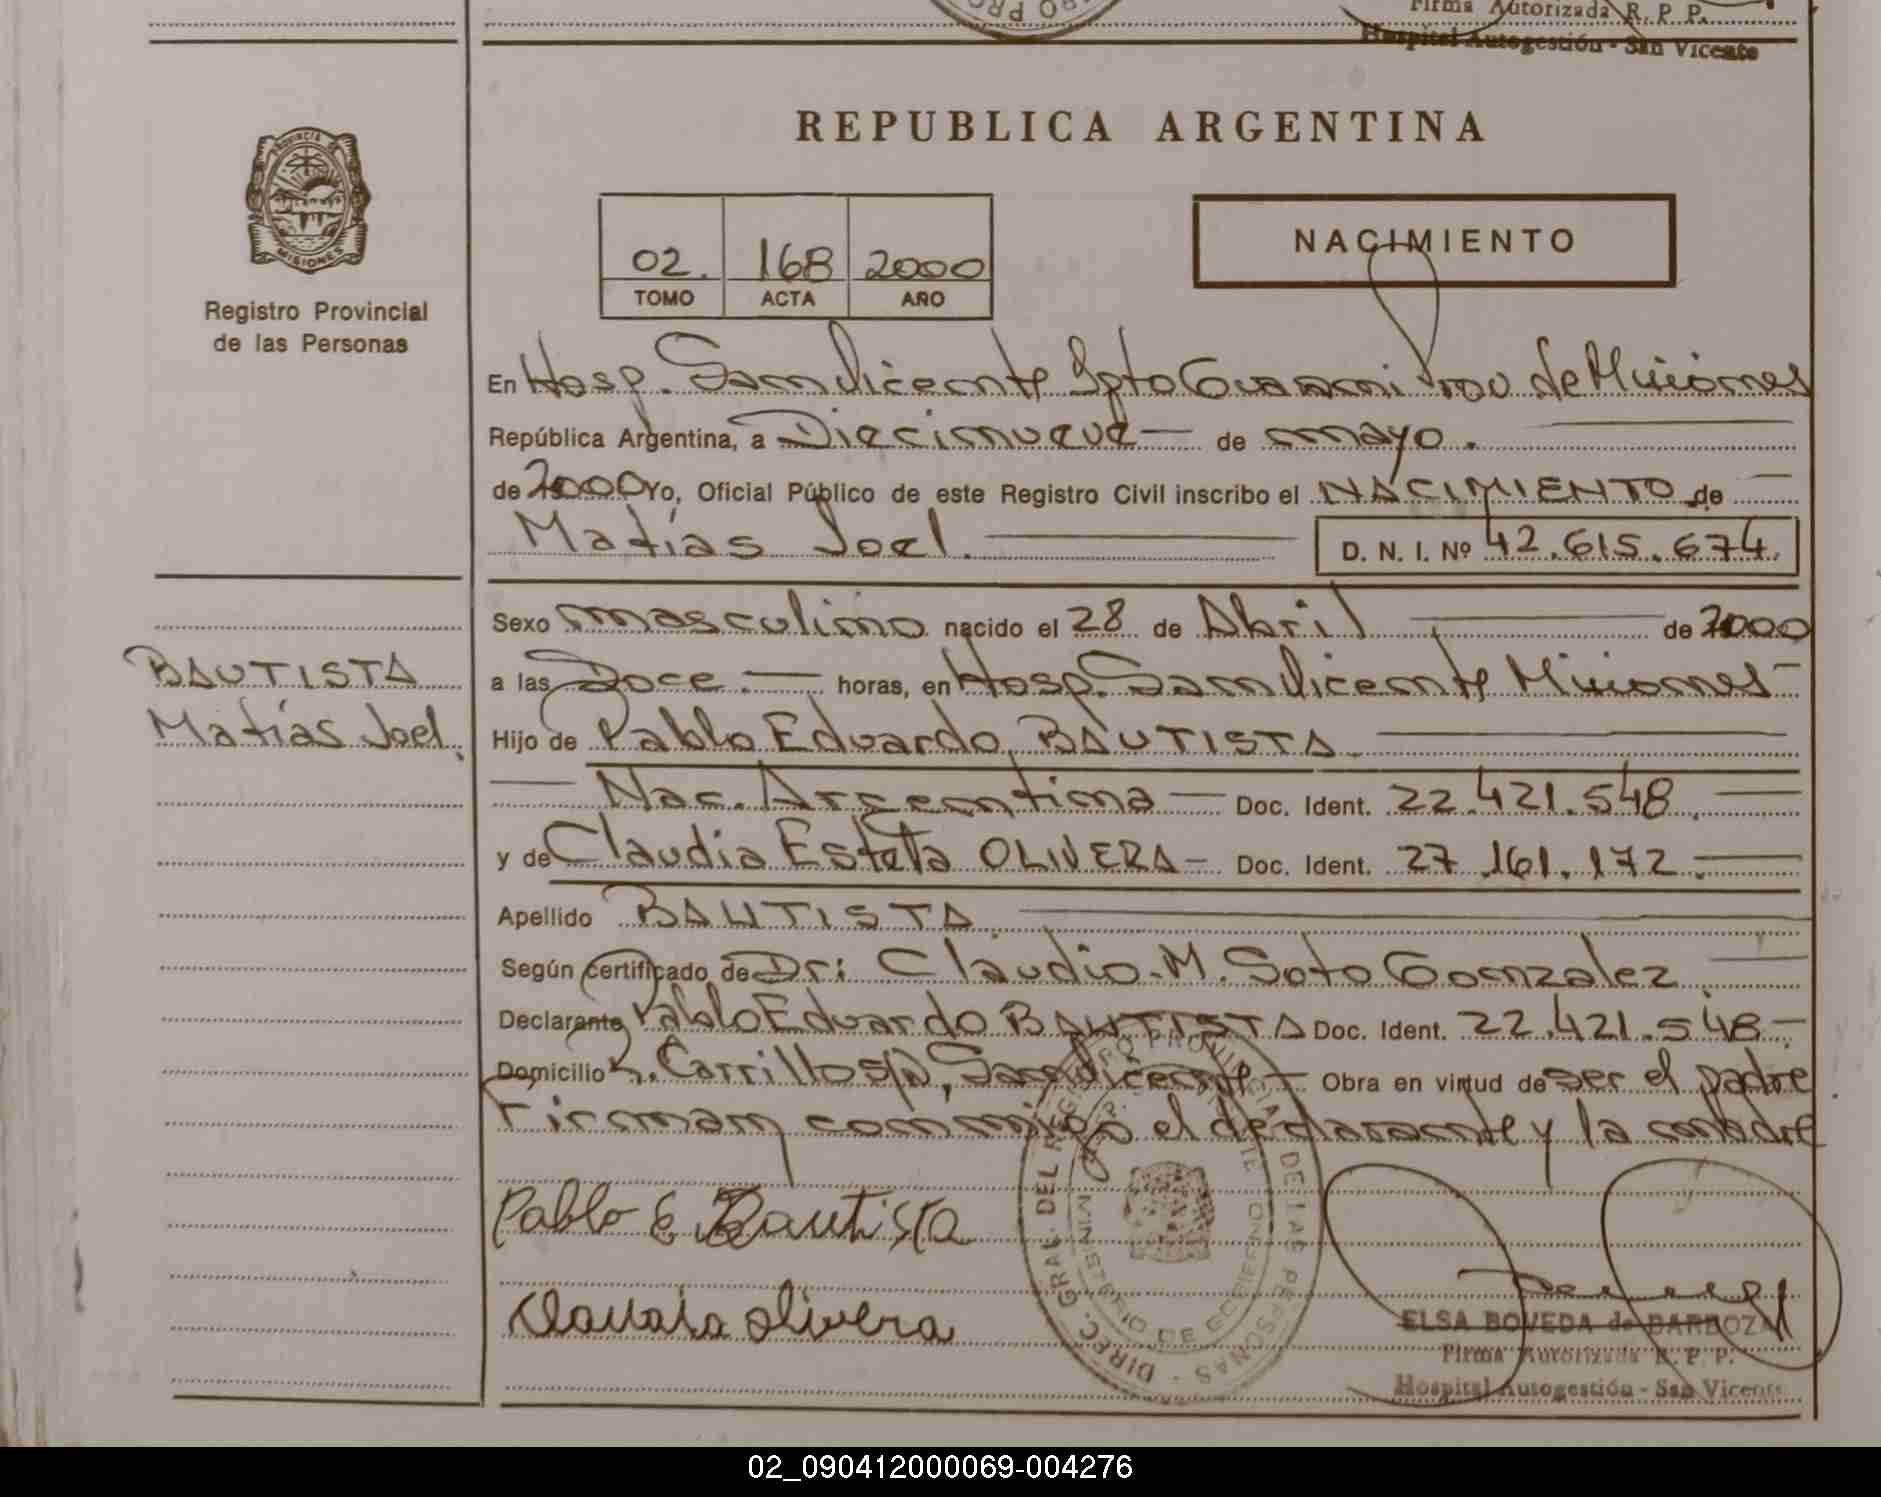 Firma Autorizada R. P. P.
Hospital Autogestión - San Vicente
REPUBLICA ARGENTINA
PROVINCIA DE
MISIONES
Registro Provincial
de las Personas
02. 168 2000
TOMO ACTA AÑO
NACIMIENTO
En Hosp. San Vicente Dpto Guarani Prov de Misiones
República Argentina, a Diecinueve — de mayo.
de 2000 Yo, Oficial Público de este Registro Civil inscribo el NACIMIENTO de
Matías Joel.
D. N. I. Nº 42.615.674.
Sexo masculino nacido el 28 de Abril de 2000
a las Doce. — horas, en Hosp. San Vicente Misiones
BAUTISTA
Matías Joel.
Hijo de Pablo Eduardo BAUTISTA
Nac. Argentina — Doc. Ident. 22.421.548.
y de Claudia Estela OLIVERA — Doc. Ident. 27.161.172.
Apellido BAUTISTA
Según certificado de Dr: Claudio M. Soto Gonzalez
Declarante Pablo Eduardo BAUTISTA Doc. Ident. 22.421.548. —
Domicilio R. Carrillo s/n, San Vicente — Obra en virtud de ser el padre
Firman conmigo el declarante y la madre
Pablo E Bautista
Claudia Olivera
DIREC. GRAL. DEL REGISTRO PROVINCIAL DE LAS PERSONAS
MINISTERIO DE GOBIERNO
ELSA BOVEDA de BARBOZA
Firma Autorizada R. P. P.
Hospital Autogestión - San Vicente
02_090412000069-004276